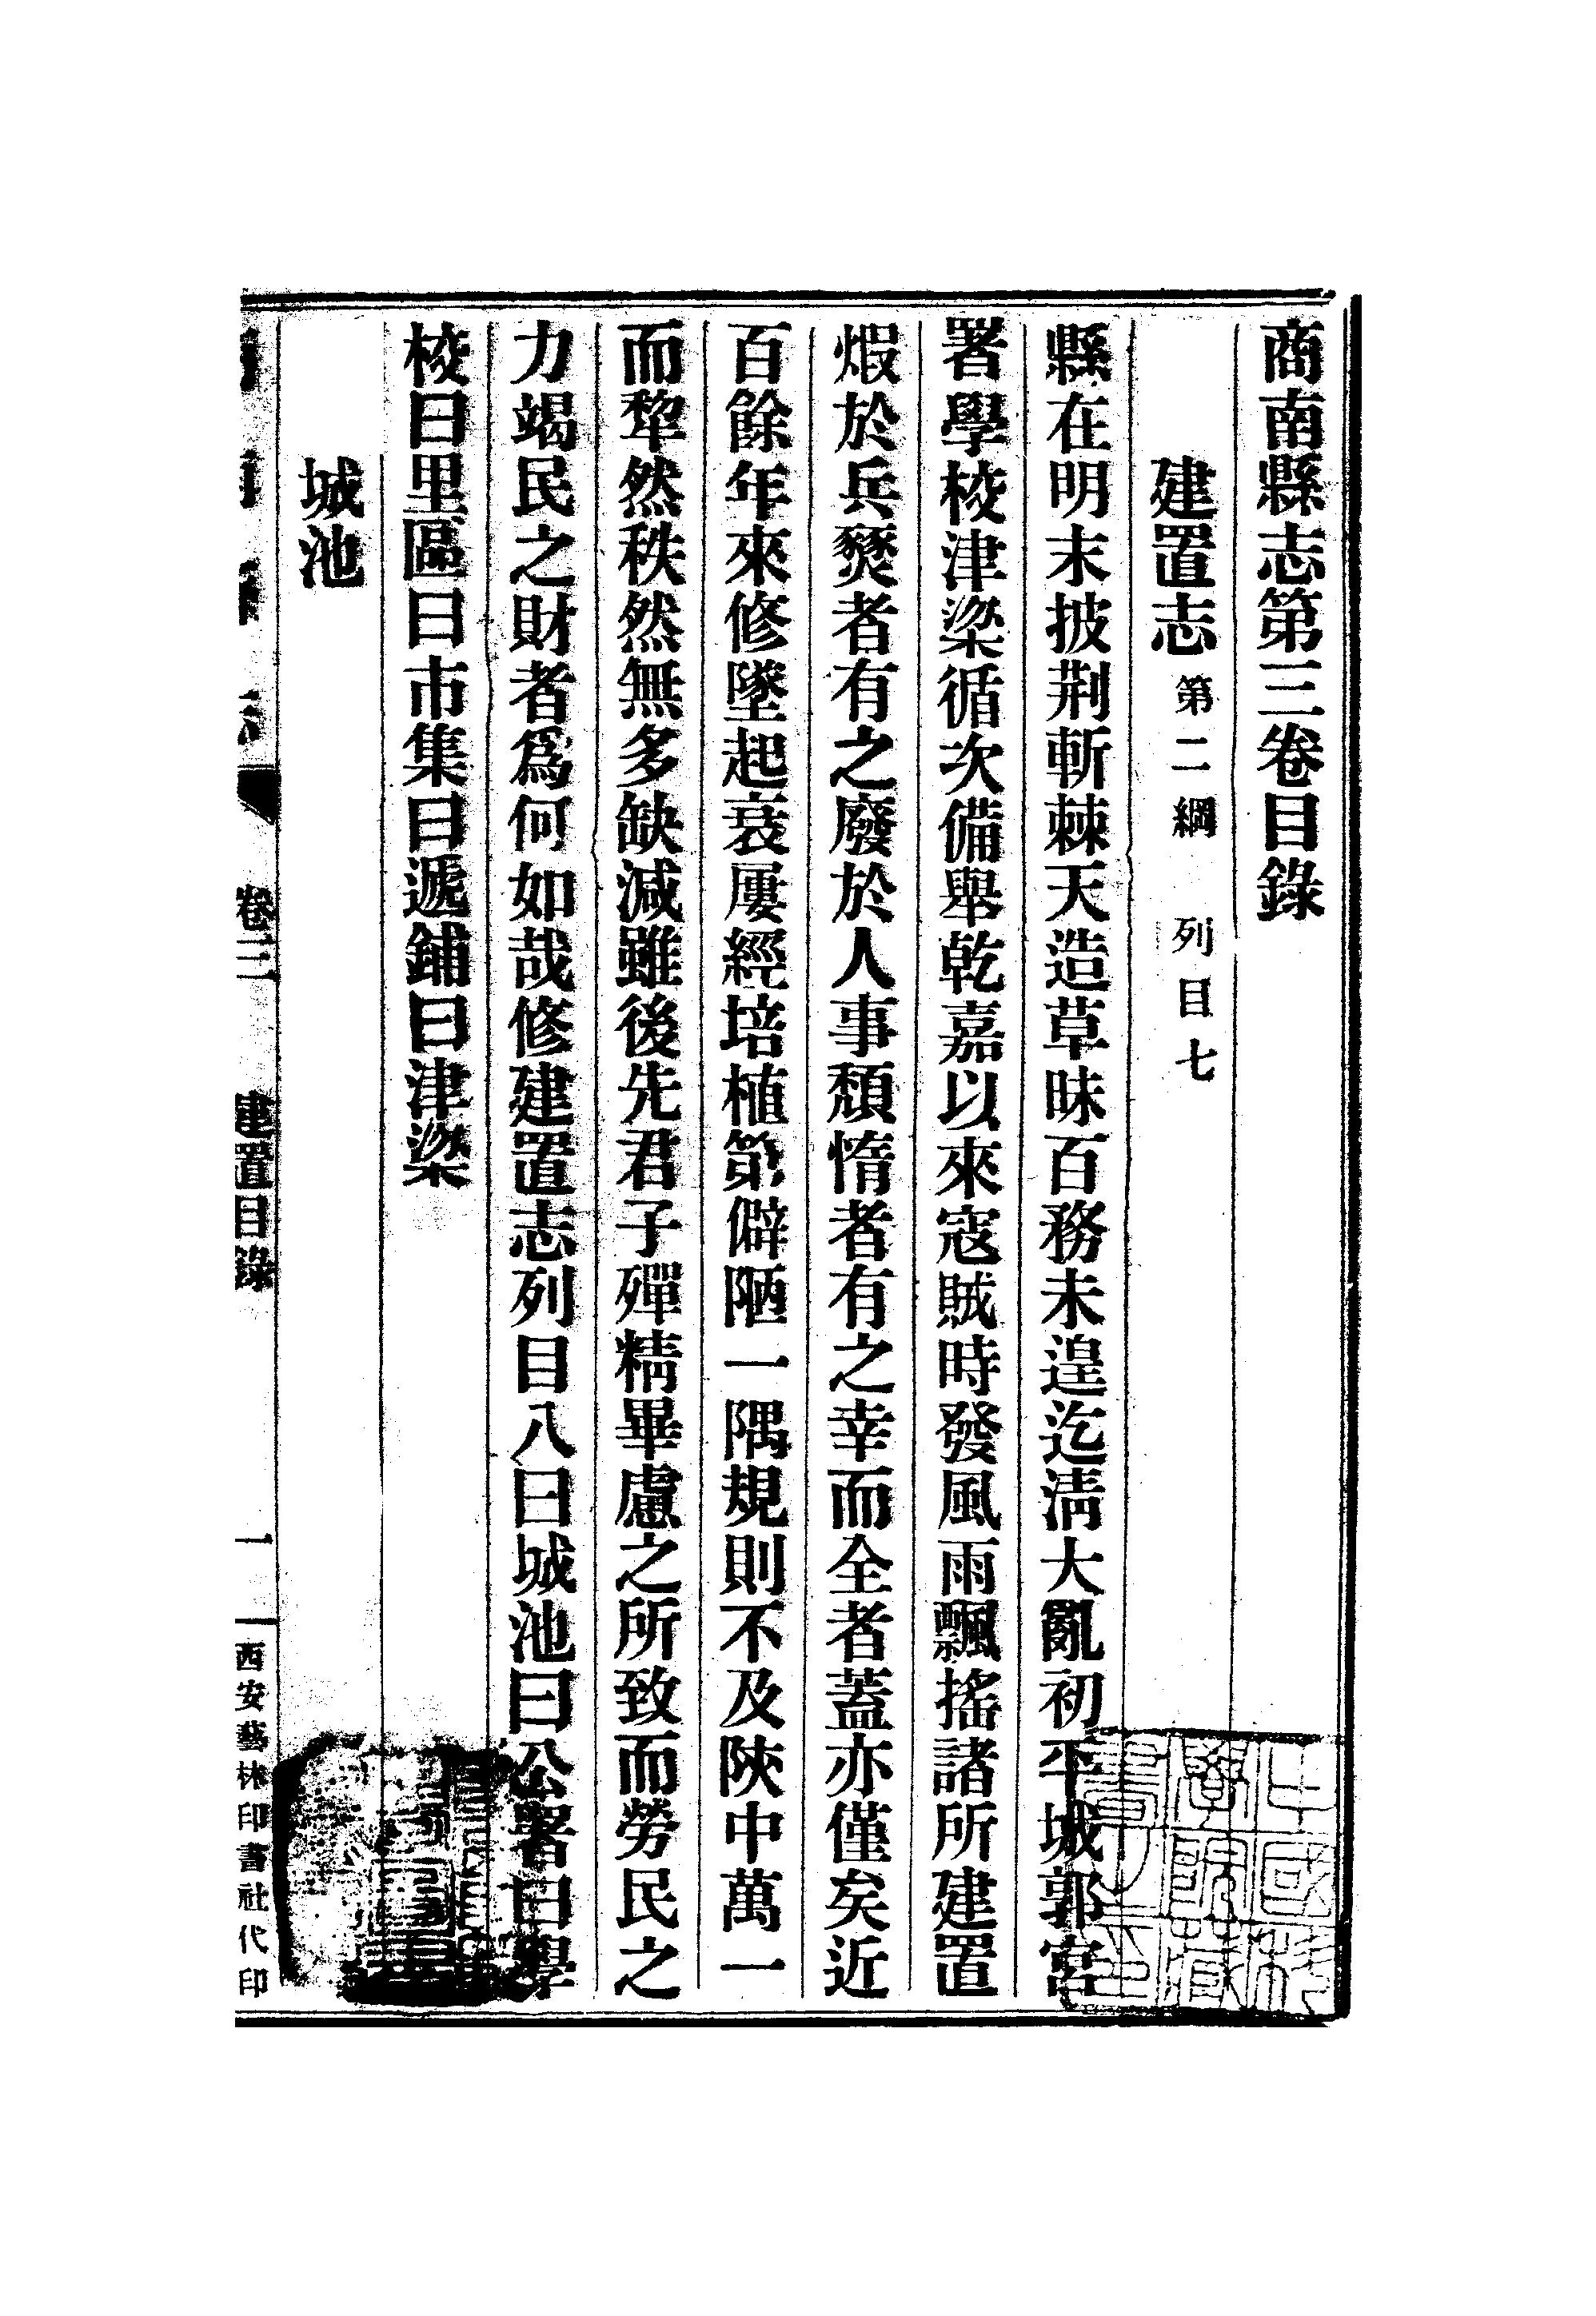 商南縣志第三卷目錄
建置志 第二綱 列目七
縣在明末披荆斬棘天造草昧百務未遑迄淸大亂初平城郭宮
署學校津梁循次備舉乾嘉以來寇賊時發風雨飄搖諸所建置
煆於兵燹者有之廢於人事頹惰者有之幸而全者蓋亦僅矣近
百餘年來修墜起衰屢經培植第僻陋一隅規則不及陝中萬一
而犂然秩然無多缺減雖後先君子殫精畢慮之所致而勞民之
力竭民之財者爲何如哉修建置志列目八曰城池曰公署曰學
校曰里區曰市集曰遞鋪曰津梁
城池
卷三 建置目錄 一 西安藝林印書社代印